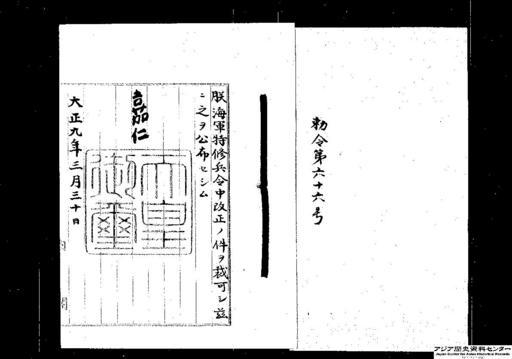 勅令第六十六号
朕海軍特修兵令中改正ノ件ヲ裁可シ茲
ニ之ヲ公布セシム
嘉仁
天皇
御璽
大正九年三月三十日
アジア歴史資料センター
Japan Center for Asian Historical Records